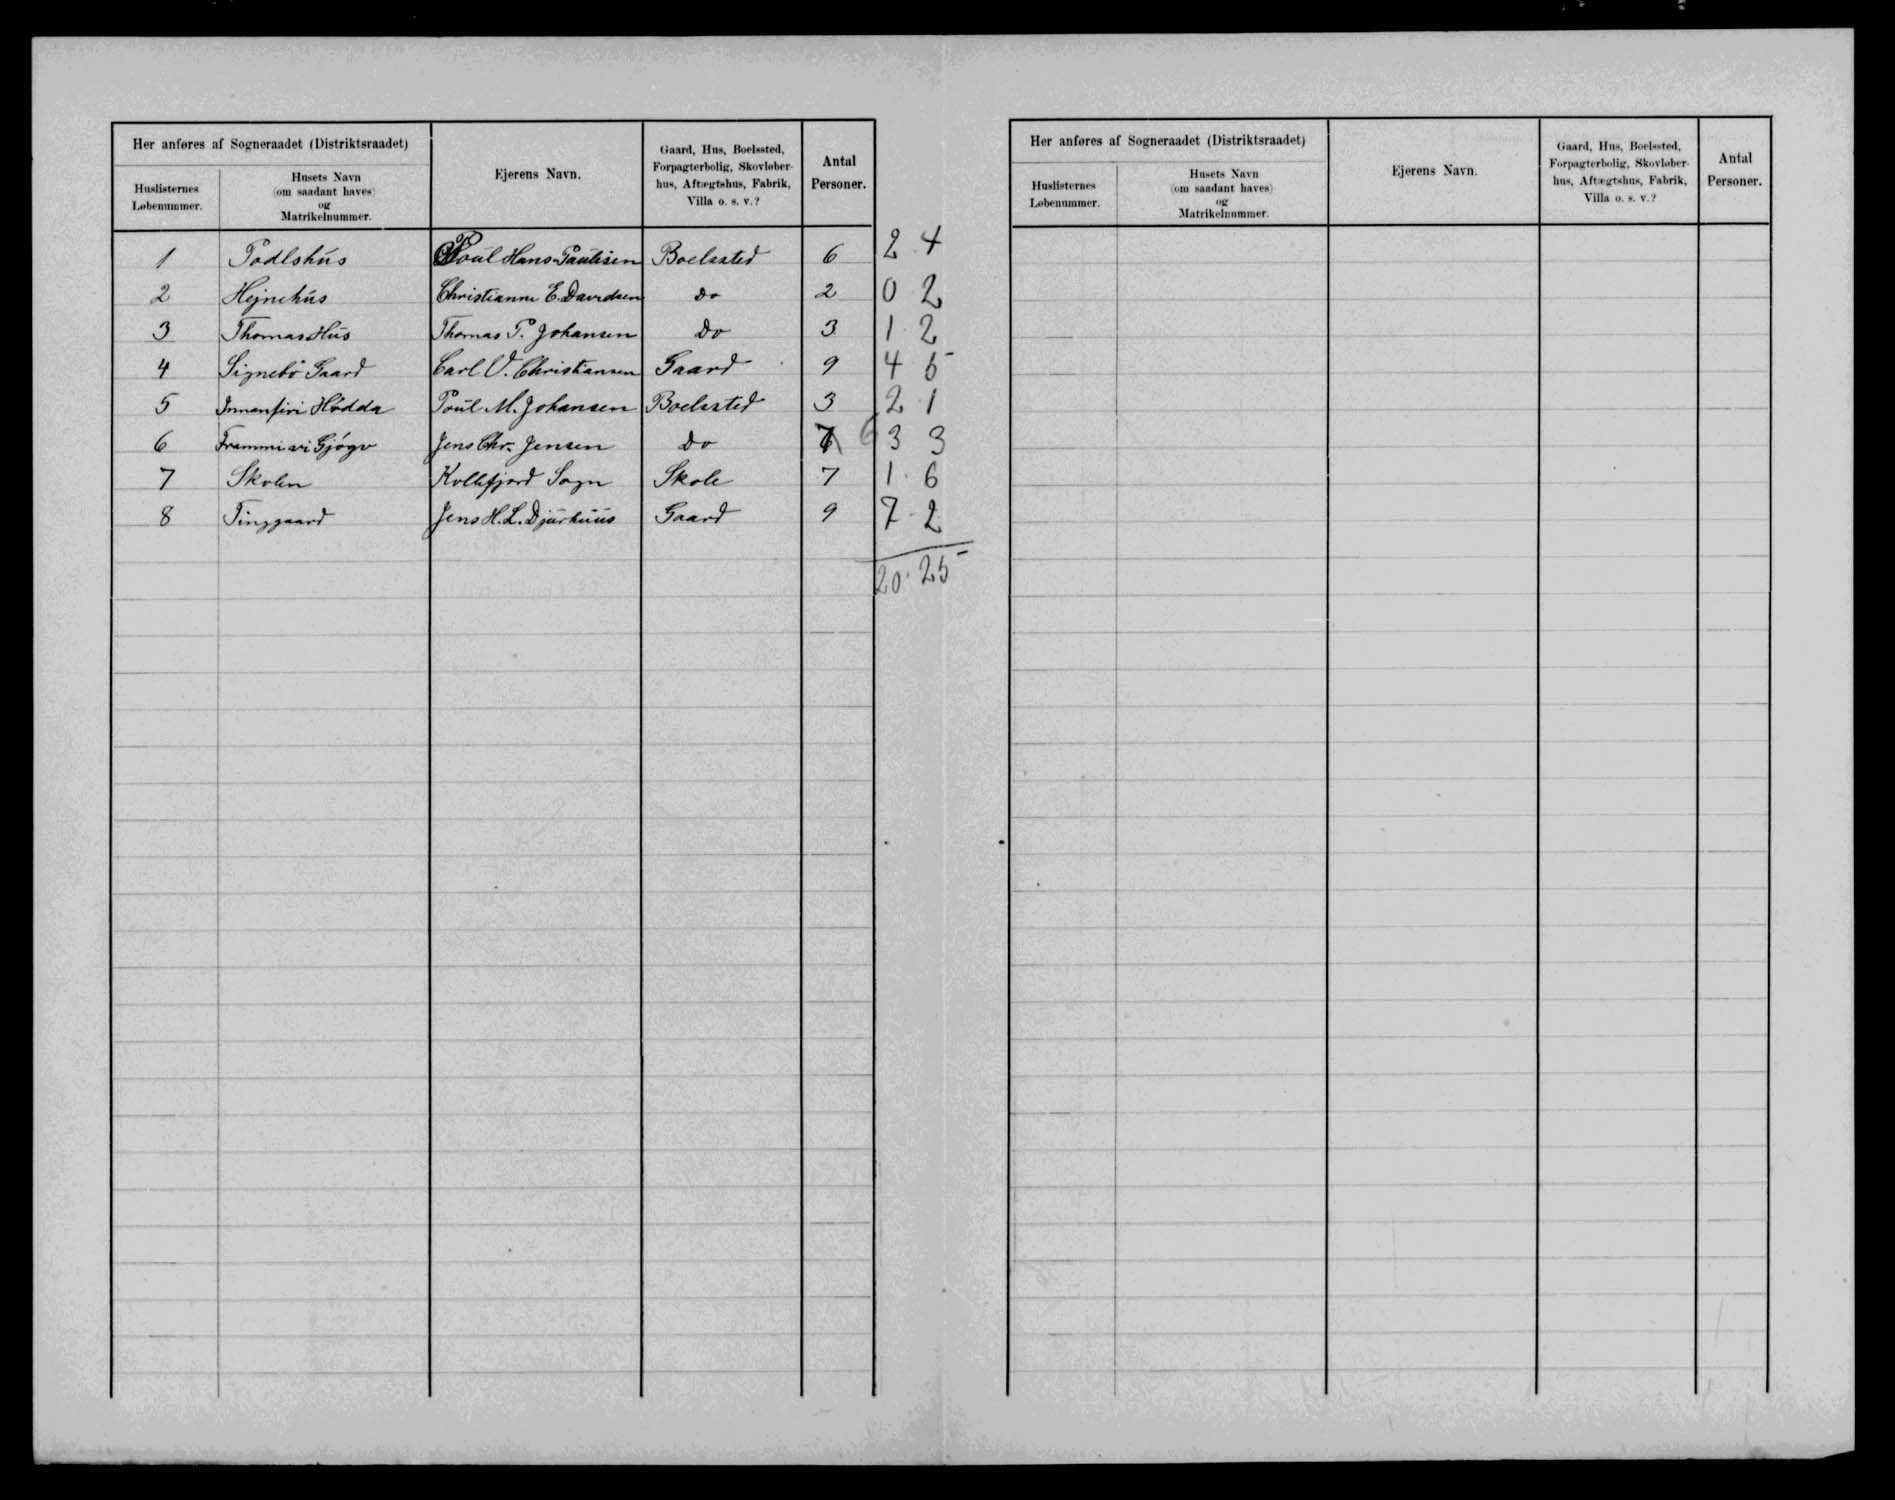 Her anføres af Sogneraadet (Distriktsraadet)
Huslisternes Løbenummer.
Husets Navn (om saadant haves) og Matrikelnummer.
Ejerens Navn.
Gaard, Hus, Boelssted, Forpagterbolig, Skovløberhus, Aftægtshus, Fabrik, Villa o. s. v.?
Antal Personer.
1 Podlshús Poul Hans Paulisen Boelssted 6 2 4
2 Hejnehús Christianne E. Davidsen Do 2 0 2
3 Thomas Hús Thomas P. Johansen Do 3 1 2
4 Signebø Gaard Carl V. Christiansen Gaard 9 4 5
5 Innanfiri Hødda Poul M. Johansen Boelssted 3 2 1
6 Frammi vi Gjógv Jens Chr. Jensen Do 7 6 3 3
7 Skolen Kollefjord Sogn Skole 7 1 6
8 Tinggaard Jens H. L. Djurhuus Gaard 9 7 2
20 25
Her anføres af Sogneraadet (Distriktsraadet)
Huslisternes Løbenummer.
Husets Navn (om saadant haves) og Matrikelnummer.
Ejerens Navn.
Gaard, Hus, Boelssted, Forpagterbolig, Skovløberhus, Aftægtshus, Fabrik, Villa o. s. v.?
Antal Personer.